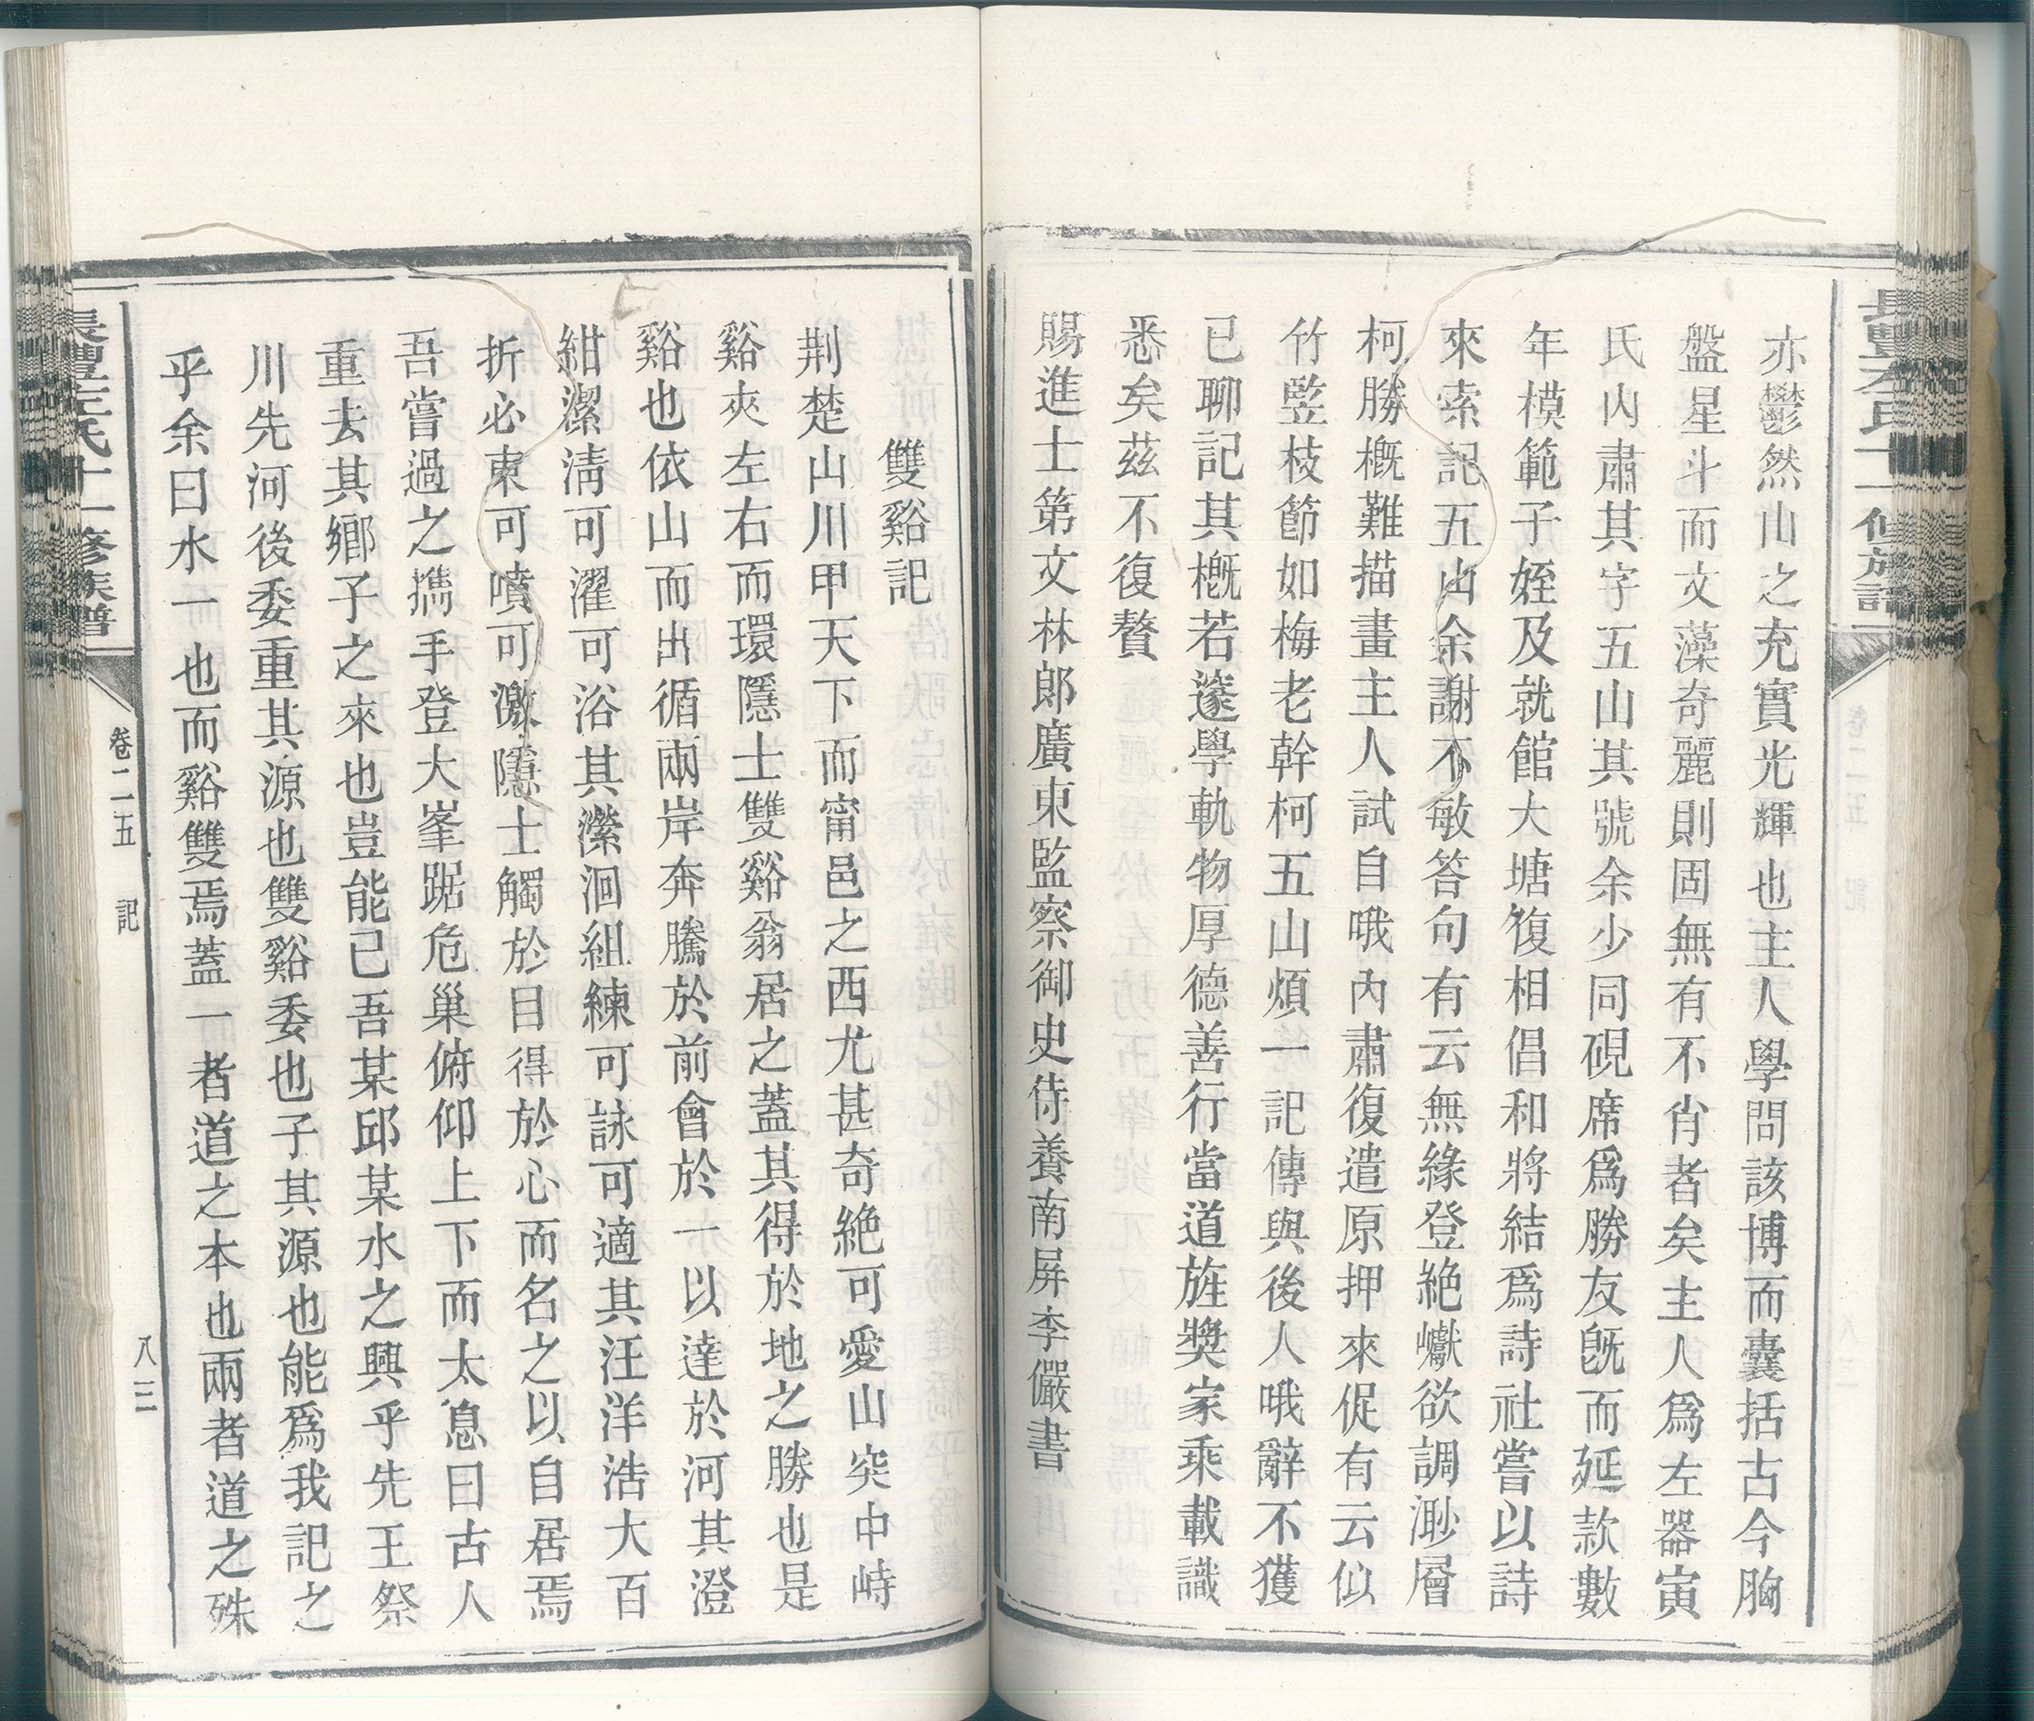 亦鬱然山之充實光輝也主人學問該博而囊括古今胸
盤星斗而文藻奇麗則固無有不肖者矣主人爲左器寅
氏內肅其字五山其號余少同硯席爲勝友既而延款數
年模範子姪及就館大塘復相倡和將結爲詩社嘗以詩
來索記五山余謝不敏答句有云無緣登絶巘欲調渺層
柯勝概難描畫主人試自哦內肅復遣原押來促有云似
竹竪枝節如梅老幹柯五山煩一記傳與後人哦辭不獲
已聊記其概若邃學軌物厚德善行當道旌獎家乘載識
悉矣茲不復贅
賜進士第文林郎廣東監察御史侍養南屏李儼書
雙谿記
荆楚山川甲天下而甯邑之西尤甚奇絶可愛山突中峙
谿夾左右而環隱士雙谿翁居之蓋其得於地之勝也是
谿也依山而出循兩岸奔騰於前會於一以達於河其澄
紺潔淸可濯可浴其瀠洄組練可詠可適其汪洋浩大百
折必東可噴可激隱士觸於目得於心而名之以自居焉
吾嘗過之携手登大峯踞危巢俯仰上下而太息曰古人
重去其鄉子之來也豈能已吾某邱某水之興乎先王祭
川先河後委重其源也雙谿委也子其源也能爲我記之
乎余曰水一也而谿雙焉蓋一者道之本也兩者道之殊
卷二五　記
八三